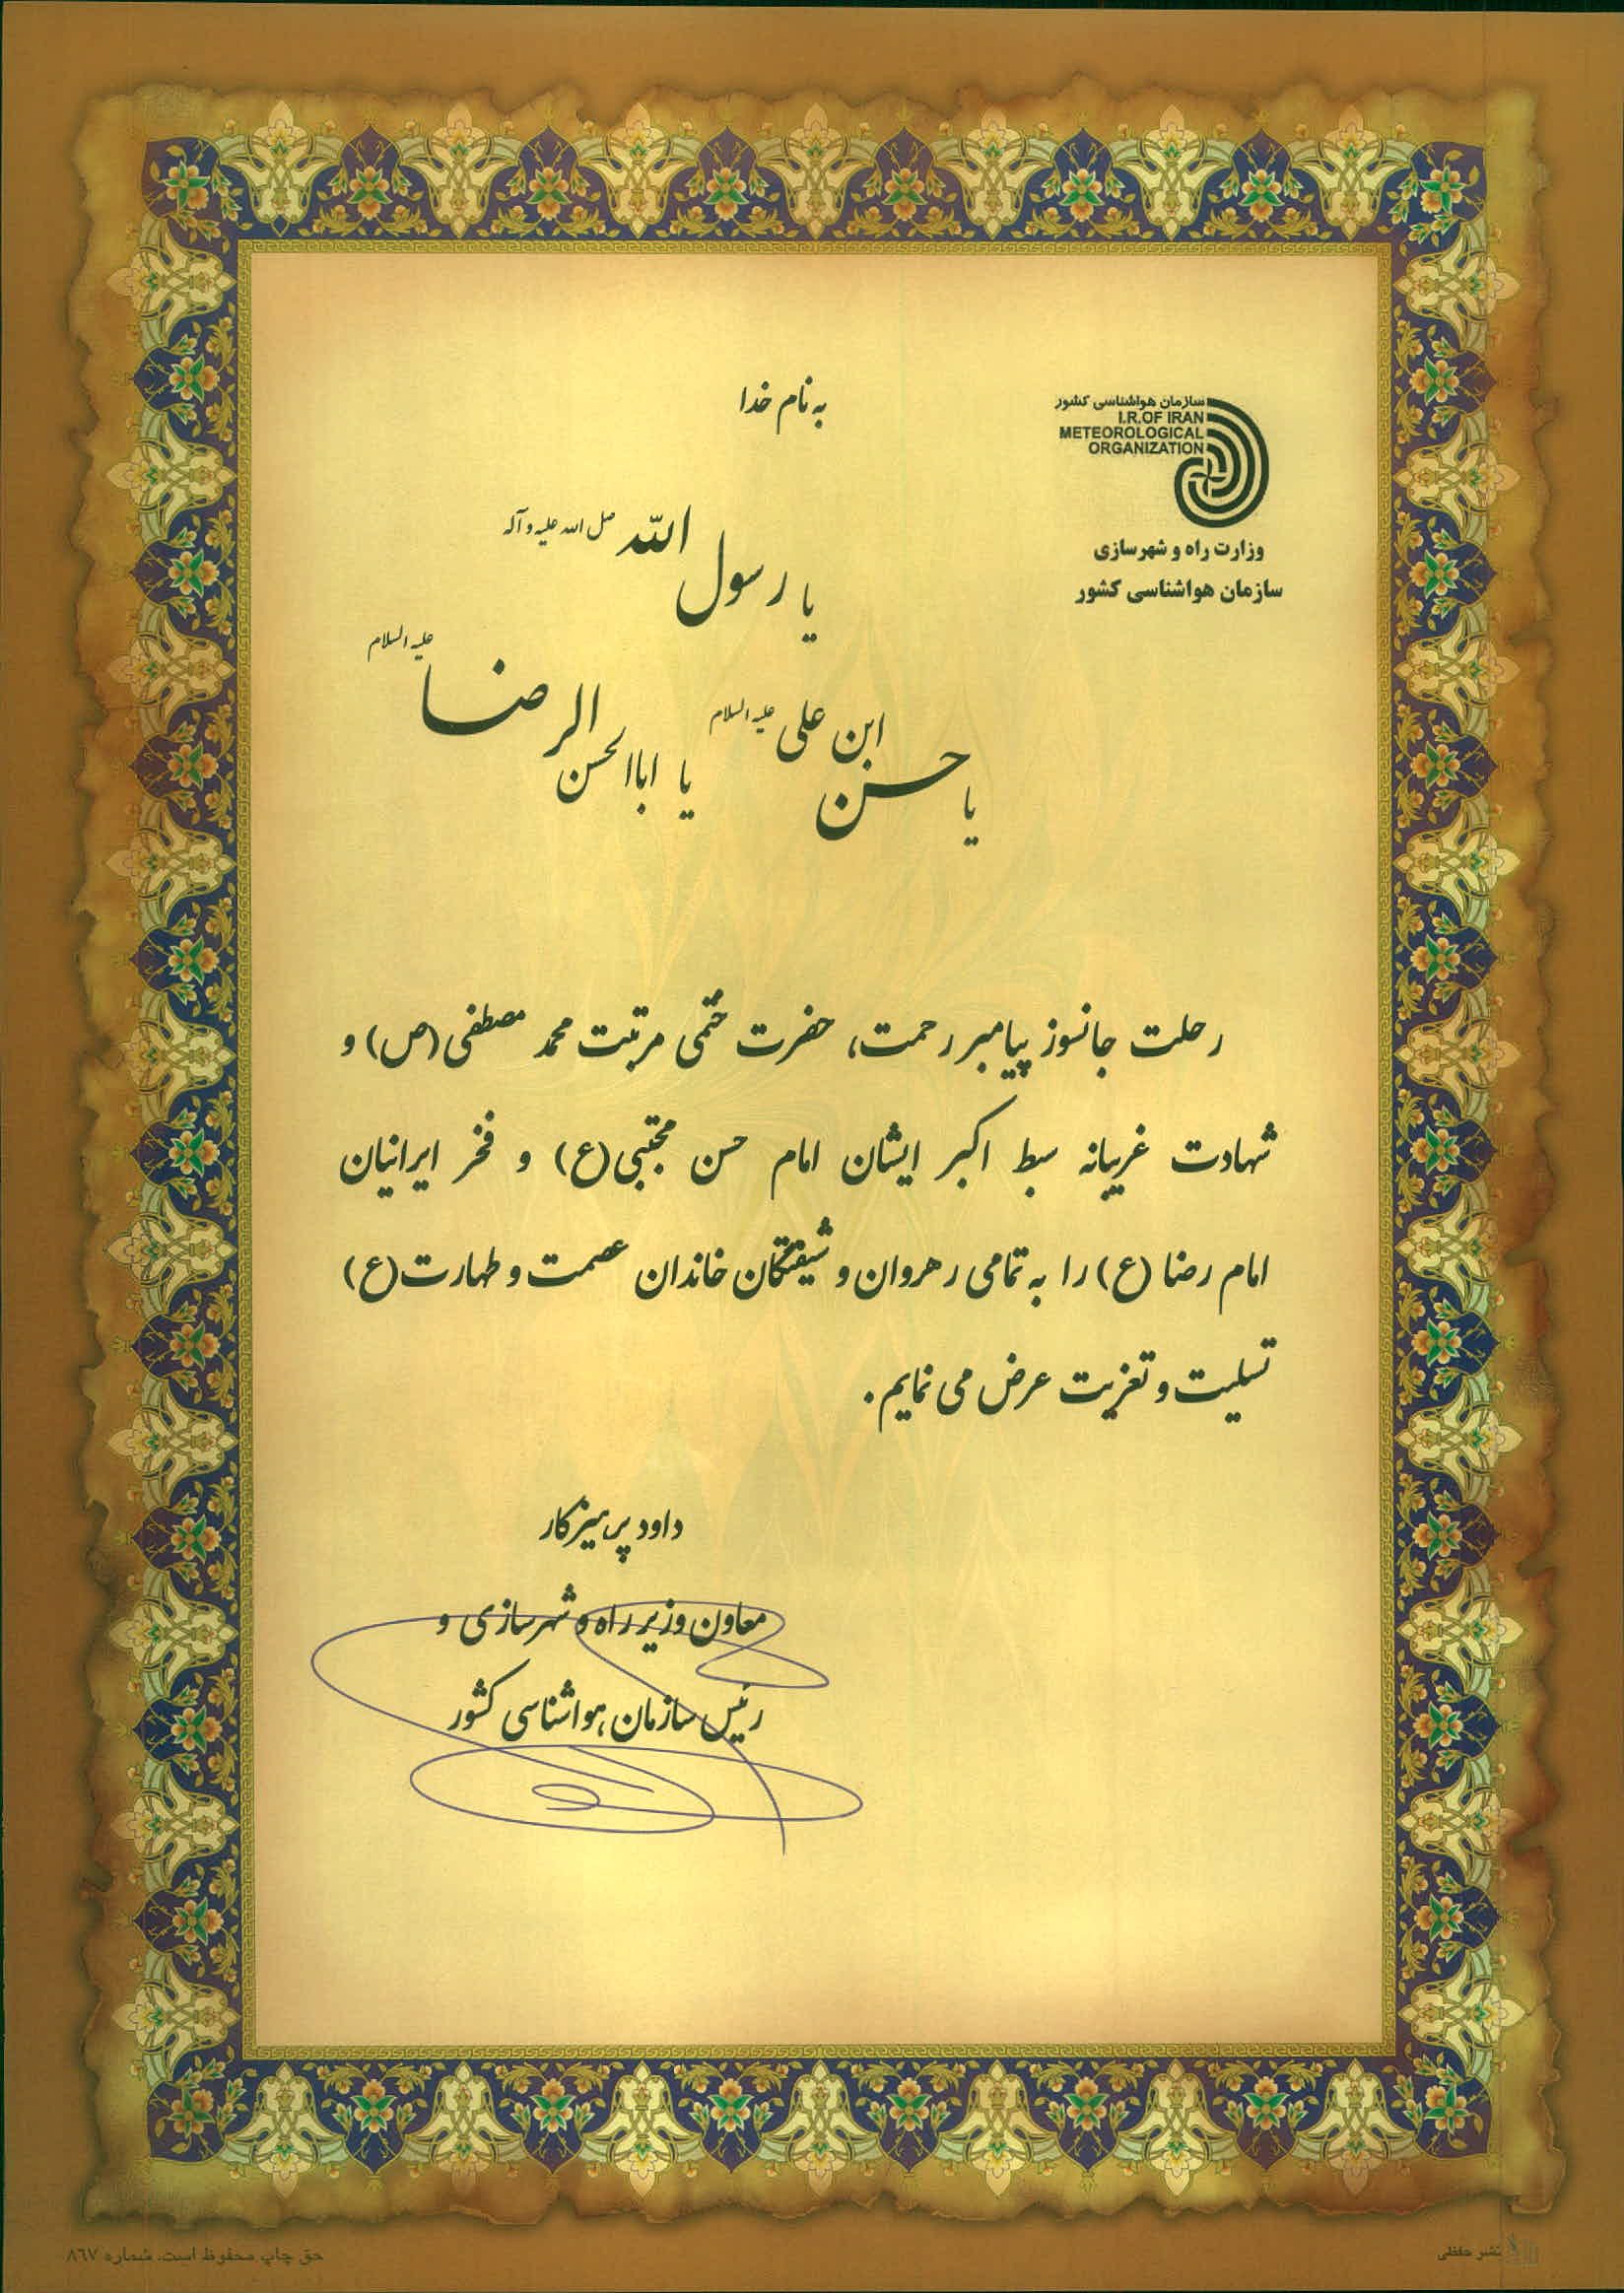 به نام خدا
سازمان هواشناسی کشور
I.R.OF IRAN
METEOROLOGICAL
ORGANIZATION
وزارت راه و شهرسازی
سازمان هواشناسی کشور
یا رسول الله صل الله علیه و آله
یا حسن ابن علی علیه السلام یا اباالحسن الرضا علیه السلام
رحلت جانسوز پیامبر رحمت، حضرت ختمی مرتبت محمد مصطفی (ص) و
شهادت غریبانه سبط اکبر ایشان امام حسن مجتبی (ع) و فخر ایرانیان
امام رضا (ع) را به تمامی رهروان و شیفتگان خاندان عصمت و طهارت (ع)
تسلیت و تعزیت عرض می نمایم.
داود پرهیزکار
معاون وزیر راه و شهرسازی و
رئیس سازمان هواشناسی کشور
نشر حافظی
حق چاپ محفوظ است. شماره ۸۶۷